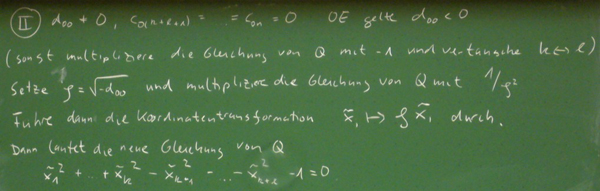 II d₀₀ ≠ 0, c₀₍ₖ₊ₗ₊₁₎ = = c₀ₙ = 0 OE gelte d₀₀ < 0
(sonst multipliziere die Gleichung von Q mit -1 und vertausche k ↔ l)
Setze ρ = √-d₀₀ und multipliziere die Gleichung von Q mit 1/ρ²
Führe dann die Koordinatentransformation x̃₁ ↦ ρ x̃₁ durch.
Dann lautet die neue Gleichung von Q
x̃₁² + .. + x̃ₖ² - x̃ₖ₊₁² - ... - x̃ₖ₊ₗ² - 1 = 0